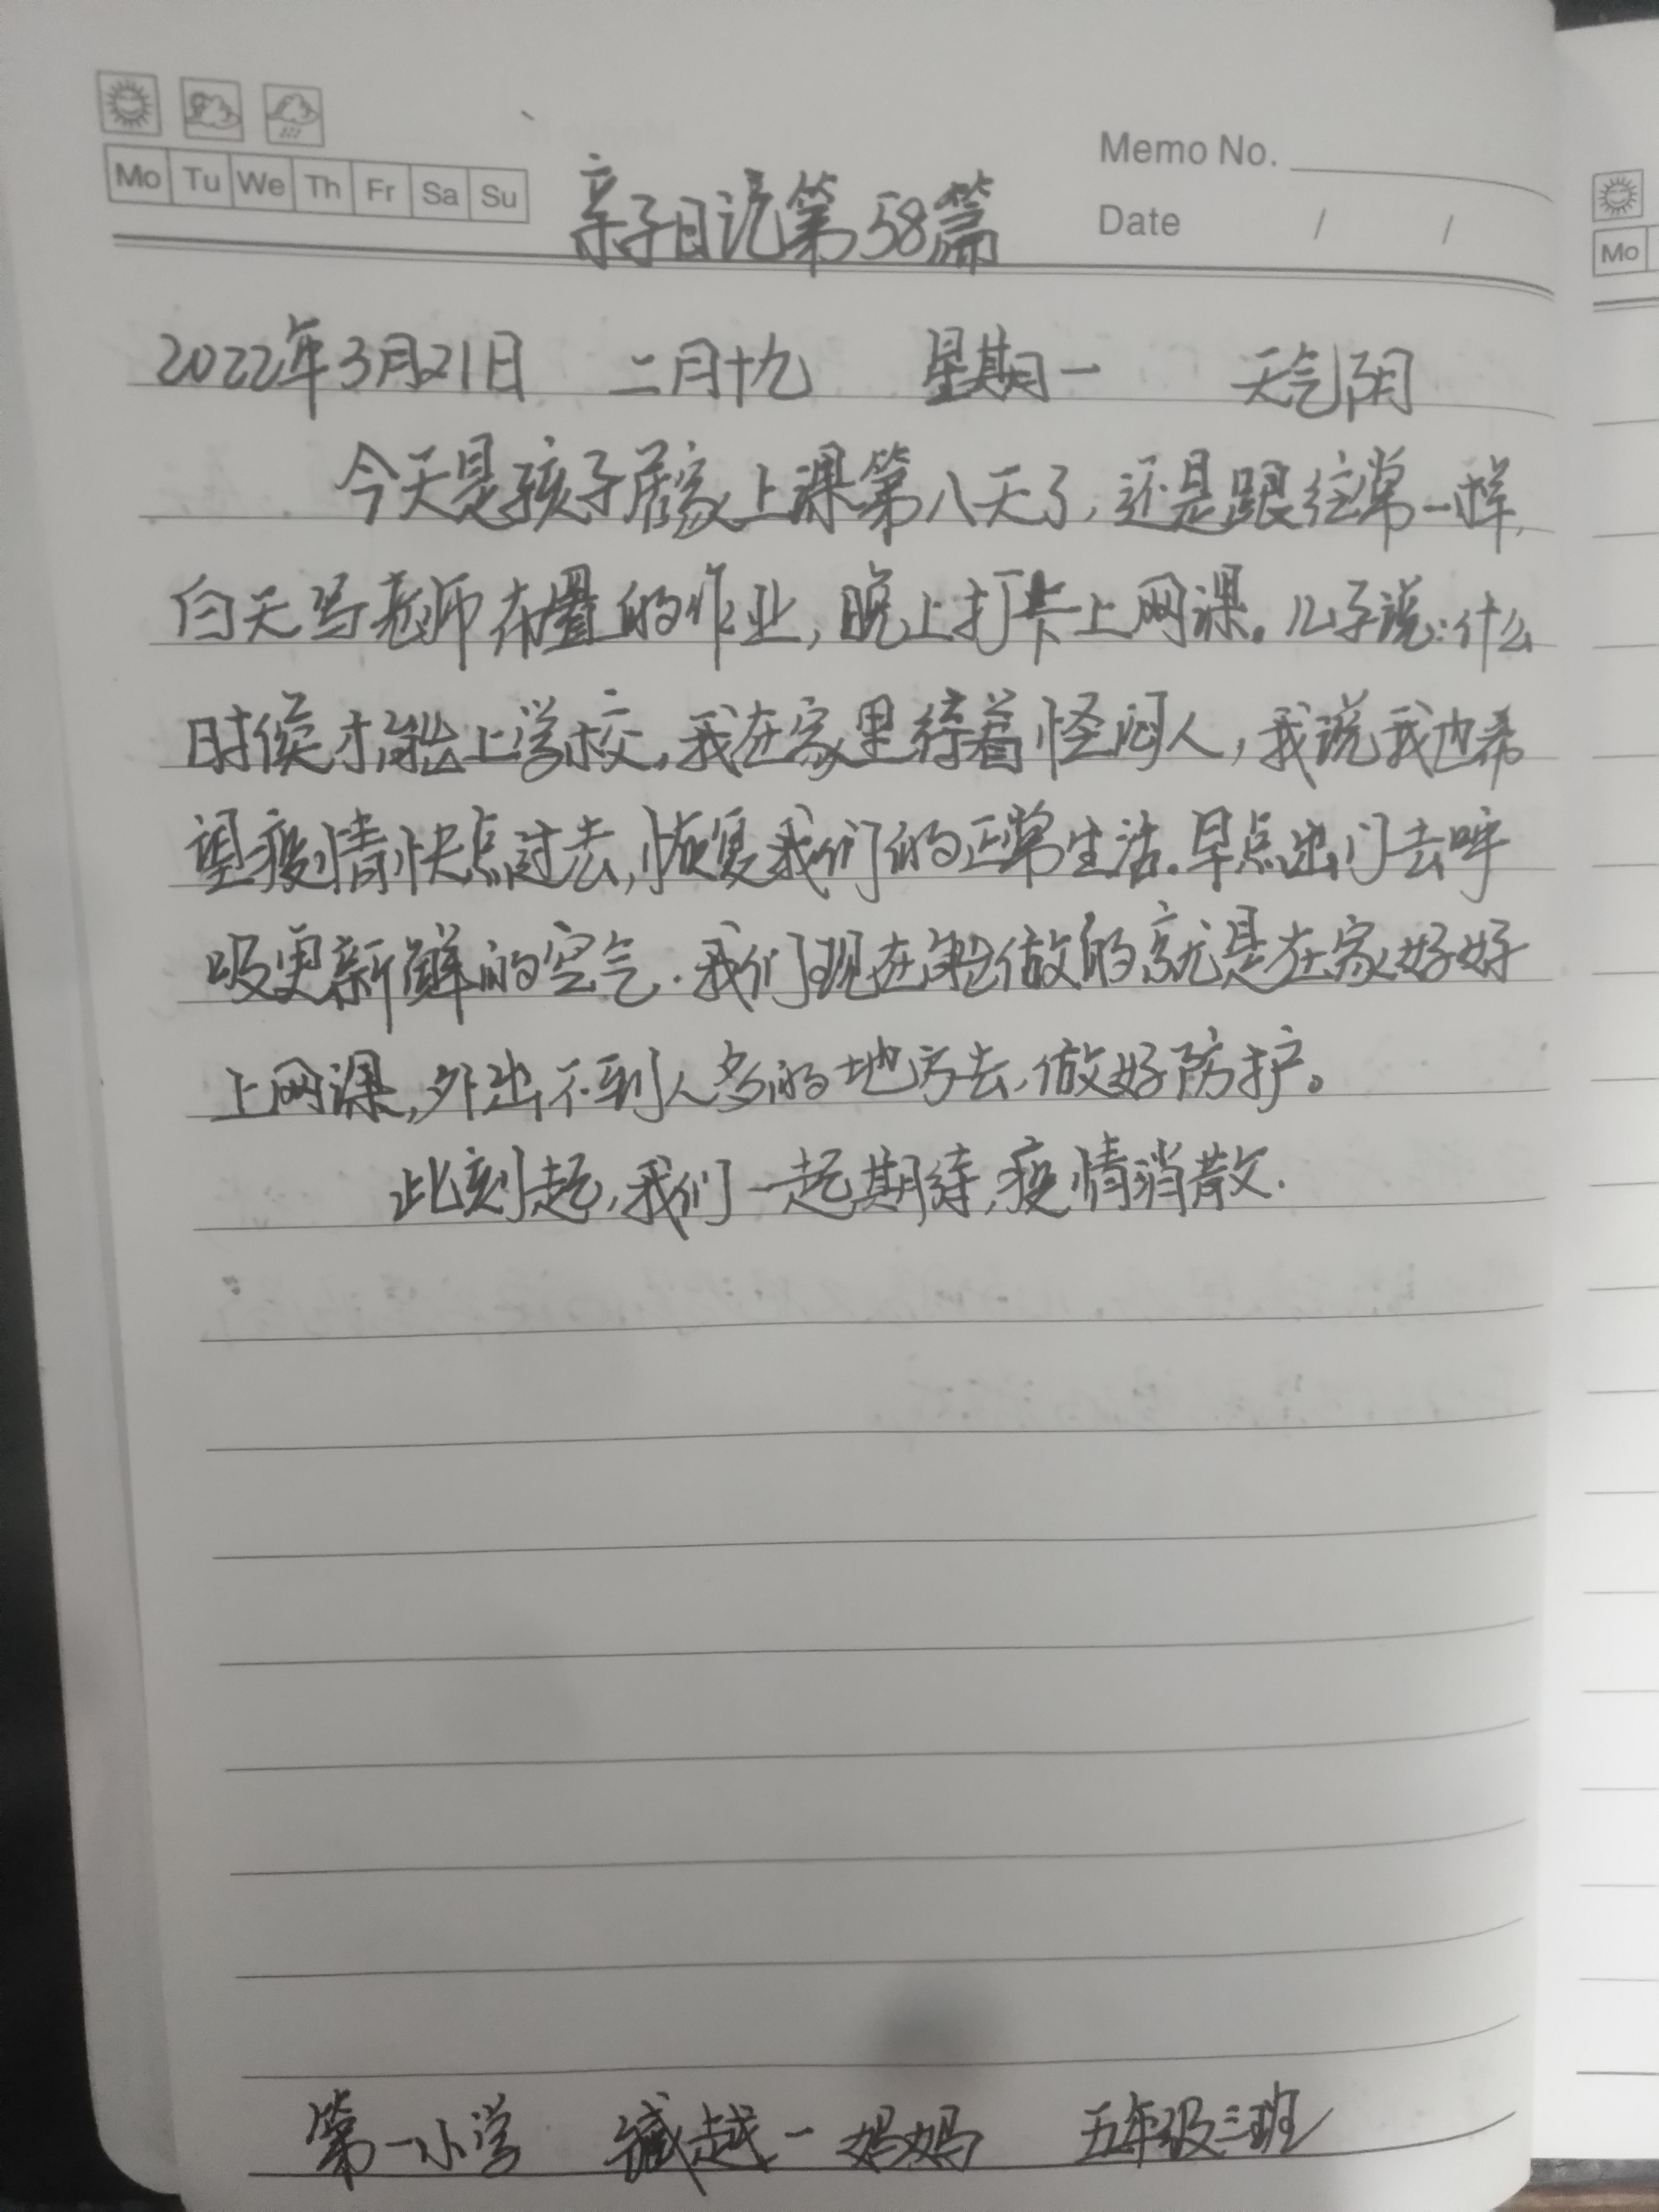 Memo No.
Mo Tu We Th Fr Sa Su
亲子日记第58篇
Date / /
Mo
2022年3月21日 二月十九 星期一 天气阴
今天是孩子居家上课第八天了,还是跟往常一样,
白天写老师布置的作业,晚上打卡上网课。儿子说:什么
时候才能上学校,我在家里待着怪闷人,我说我也希
望疫情快点过去,恢复我们的正常生活.早点出门去呼
吸更新鲜的空气.我们现在能做的就是在家好好
上网课,外出不到人多的地方去,做好防护。
此刻起,我们一起期待,疫情消散.
第一小学 越一妈妈 五年级三班